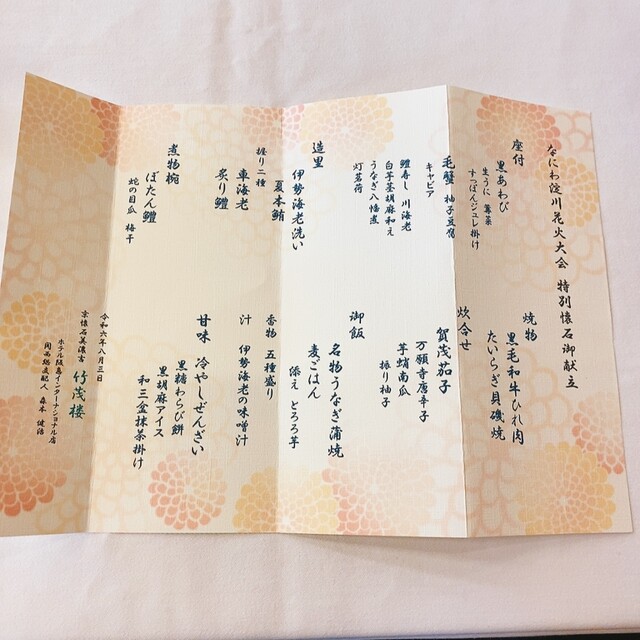 なにわ淀川花火大会 特別懐石御献立
座付
黒あわび
生うに 蓴菜
すっぽんジュレ掛け
毛蟹 柚子豆腐
キャビア
鱧寿し 川海老
白芋茎胡麻和え
うなぎ八幡煮
灯茗荷
造里
伊勢海老洗い
夏本鮪
握り二種
車海老
炙り鱧
煮物椀
ぼたん鱧
蛇の目瓜 梅干
焼物
黒毛和牛ひれ肉
たいらぎ貝磯焼
炊合せ
賀茂茄子
万願寺唐辛子
芋蛸南瓜
振り柚子
御飯
名物うなぎ蒲焼
麦ごはん
添え とろろ芋
香物 五種盛り
汁 伊勢海老の味噌汁
甘味 冷やしぜんざい
黒糖わらび餅
黒胡麻アイス
和三盆抹茶掛け
令和六年八月三日
京懐石美濃吉 竹茂楼
ホテル阪急インターナショナル店
関西総支配人 森本 健治